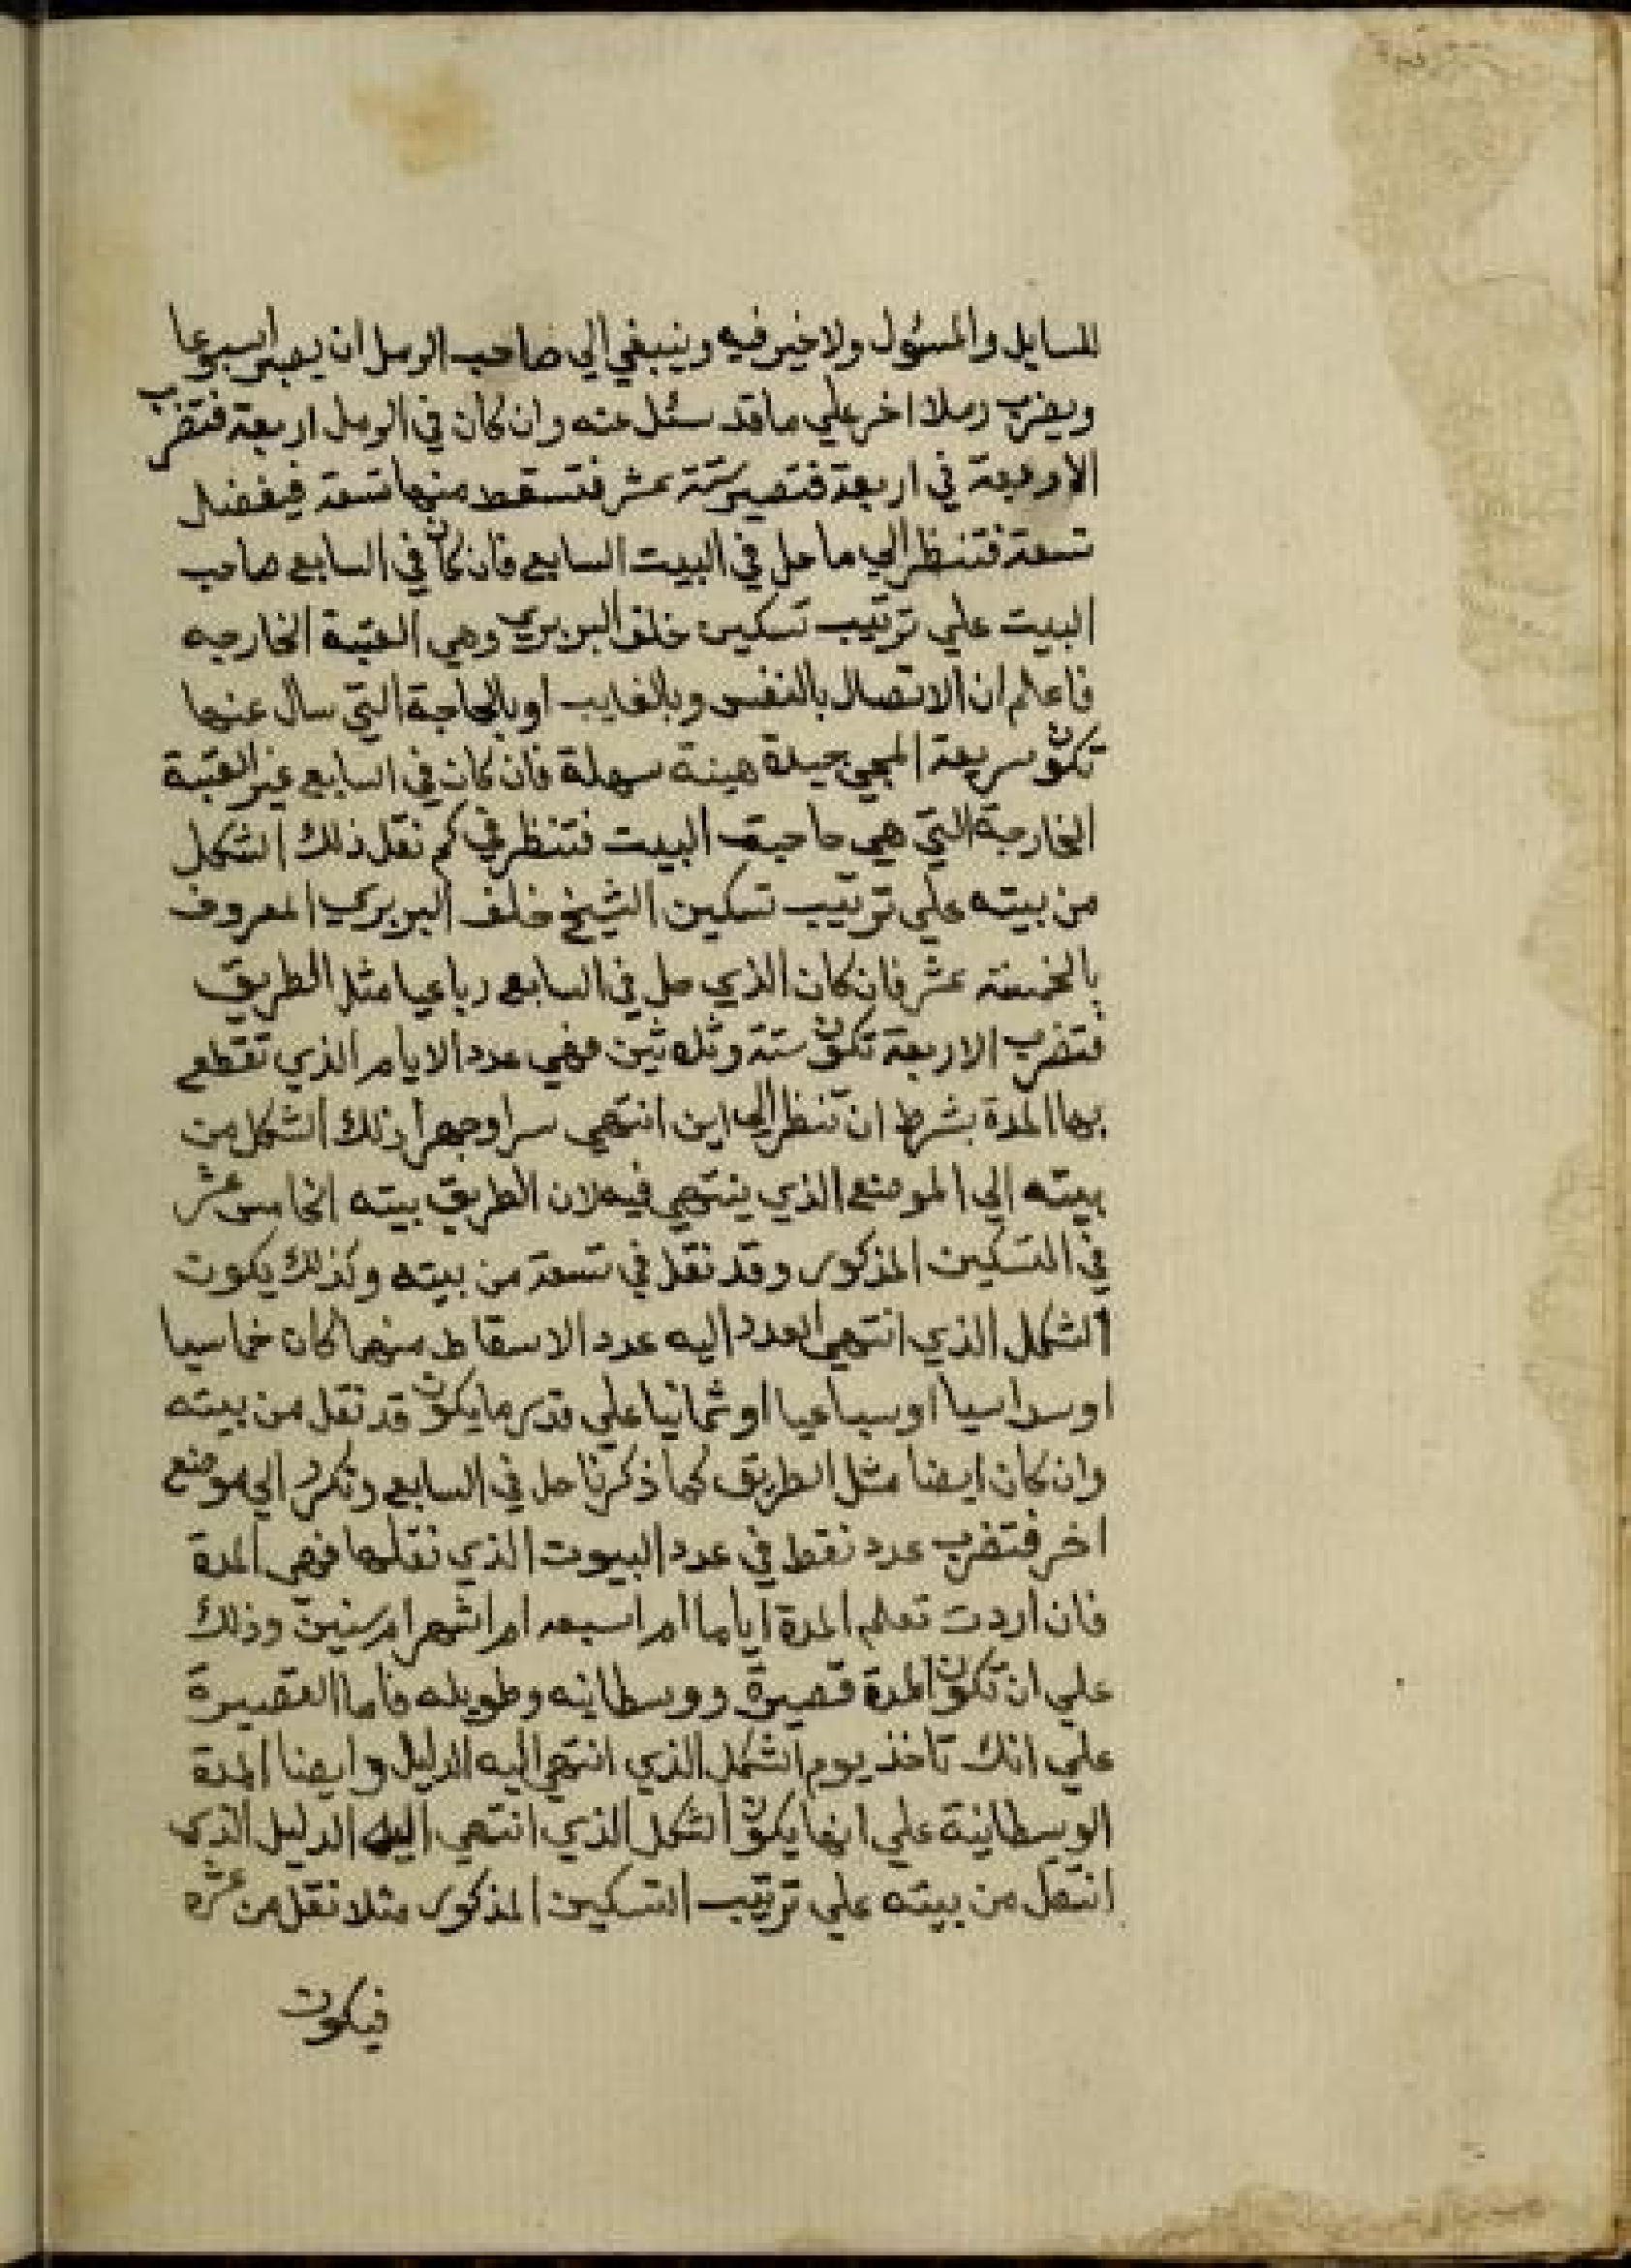 للسايل والمسؤل ولا خير فيه وينبغي الي صاحب الرمل ان يصبر اسبوعا
ويضرب رملا اخر علي ما قد سئل عنه وان كان في الرمل اربعة فتضرب
الاربعة في اربعة فتصير ستة عشر فتسقط منها تسعة فيفضل
تسعة فتنظر الي ما حل في البيت السابع فان كان في السابع صاحب
البيت علي ترتيب تسكين خلف البربري وهي العتبة الخارجه
فاعلم ان الاتصال بالنفس وبالغايب او بالحاجة التي سال عنها
تكون سريعة المجي جيدة هينة سهلة فان كان في السابع غير العتبة
الخارجة التي هي صاحبة البيت فتنظر في كم نقل ذلك الشكل
من بيته علي ترتيب تسكين الشيخ خلف البربري المعروف
بالخمسة عشر فان كان الذي حل في السابع رباعيا مثل الطريق
فتضرب الاربعة تكون ستة وثلاثين فهي عدد الايام الذي تقطع
بها المدة بشرط ان تنظر الي اين انتهي سرا وجهرا ذلك الشكل من
بيته الي الموضع الذي ينتهي فيه لان الطريق بيته الخامس عشر
في التسكين المذكور وقد نقل في تسعة من بيته وكذلك يكون
الشكل الذي انتهي العدد اليه عدد الاسقاط منهما كان خماسيا
او سداسيا او سباعيا او ثمانيا علي قدر ما يكون قد نقل من بيته
وان كان ايضا مثل الطريق كما ذكرنا حل في السابع وتكرر الي موضع
اخر فتضرب عدد نقط في عدد البيوت الذي نقلها فهي المدة
فان اردت تعلم المدة اياما ام اسبعه ام اشهر ام سنين وذلك
علي ان تكون المدة قصيرة ووسطانيه وطويله فاما القصيرة
علي انك تاخذ يوم الشكل الذي انتهي اليه الدليل وايضا المدة
الوسطانية علي انها يكون الشكل الذي انتهي اليه الدليل الذي
انتقل من بيته علي ترتيب التسكين المذكور مثلا نقل من عشره
فيكون